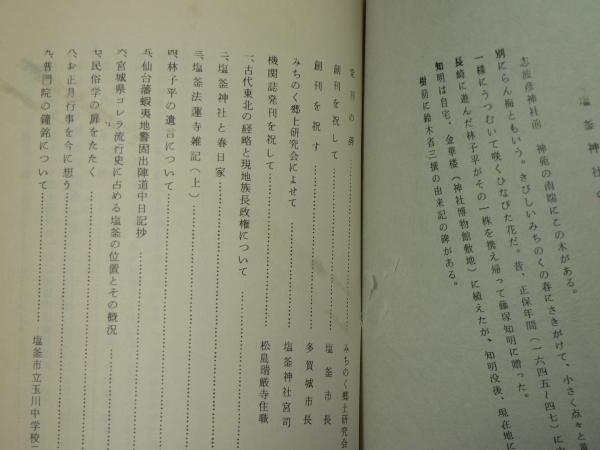 塩釜神社の
志波彦神社前　神苑の南端にこの木がある。
別にらん梅ともいう。きびしいみちのくの春にさきがけて、小さく点々と
一様にうつむいて咲くひなびた花だ。昔、正保年間（一六四五～四七）に
長崎に遊んだ林子平がその一株を携え帰って藤塚知明に贈った。
知明は自宅、金華楼（神社博物館敷地）に植えたが、知明没後、現在地に
樹前に鈴木省三撰の由来記の碑がある。
発刊の辞……みちのく郷土研究会
創刊を祝して……塩釜市長
創刊を祝す……多賀城市長
みちのく郷土研究会によせて……塩釜神社宮司
機関誌発刊を祝して……松島瑞厳寺住職
一、古代東北の経略と現地族長政権について……
二、塩釜神社と春日家……
三、塩釜法蓮寺雑記（上）……
四、林子平の遺言について……
五、仙台藩蝦夷地警固出陣道中日記抄……
六、宮城県コレラ流行史に占める塩釜の位置とその概況……
七、民俗学の扉をたたく……
八、お正月行事を今に想う……
九、普門院の鐘銘について……塩釜市立玉川中学校